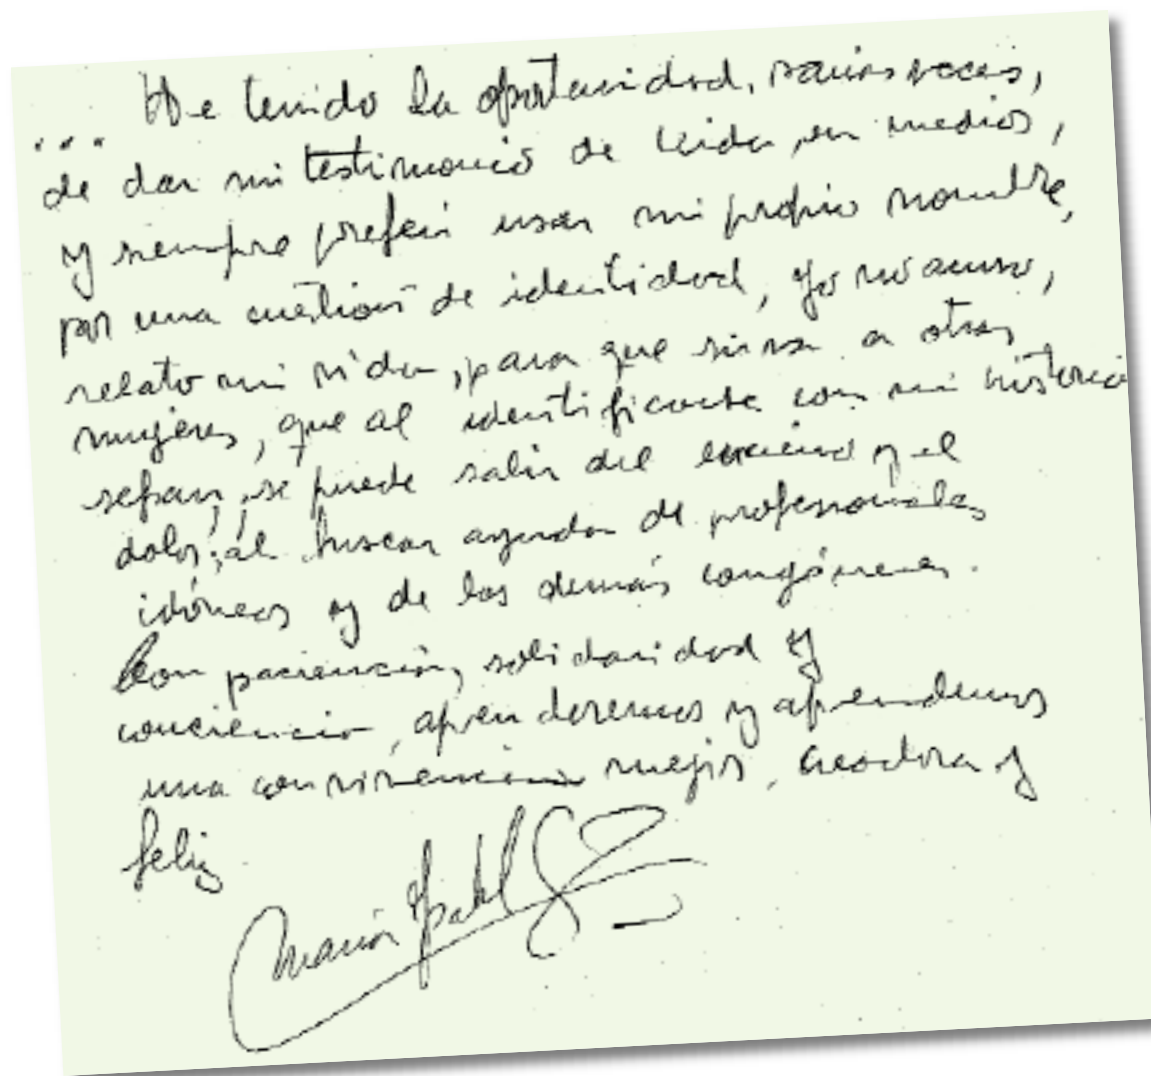 ... He tenido la oportunidad, varias veces,
de dar mi testimonio de vida, en medios,
y siempre preferí usar mi propio nombre,
por una cuestión de identidad, yo no acuso,
relato mi vida, para que sirva a otras
mujeres, que al identificarse con mi historia
sepan, se puede salir del encierro y el
dolor, al buscar ayuda de profesionales
idóneos y de los demás congéneres.
Con paciencia, solidaridad y
conciencia, aprenderemos y aprendemos
una convivencia mejor, creadora y
feliz
María Isabel